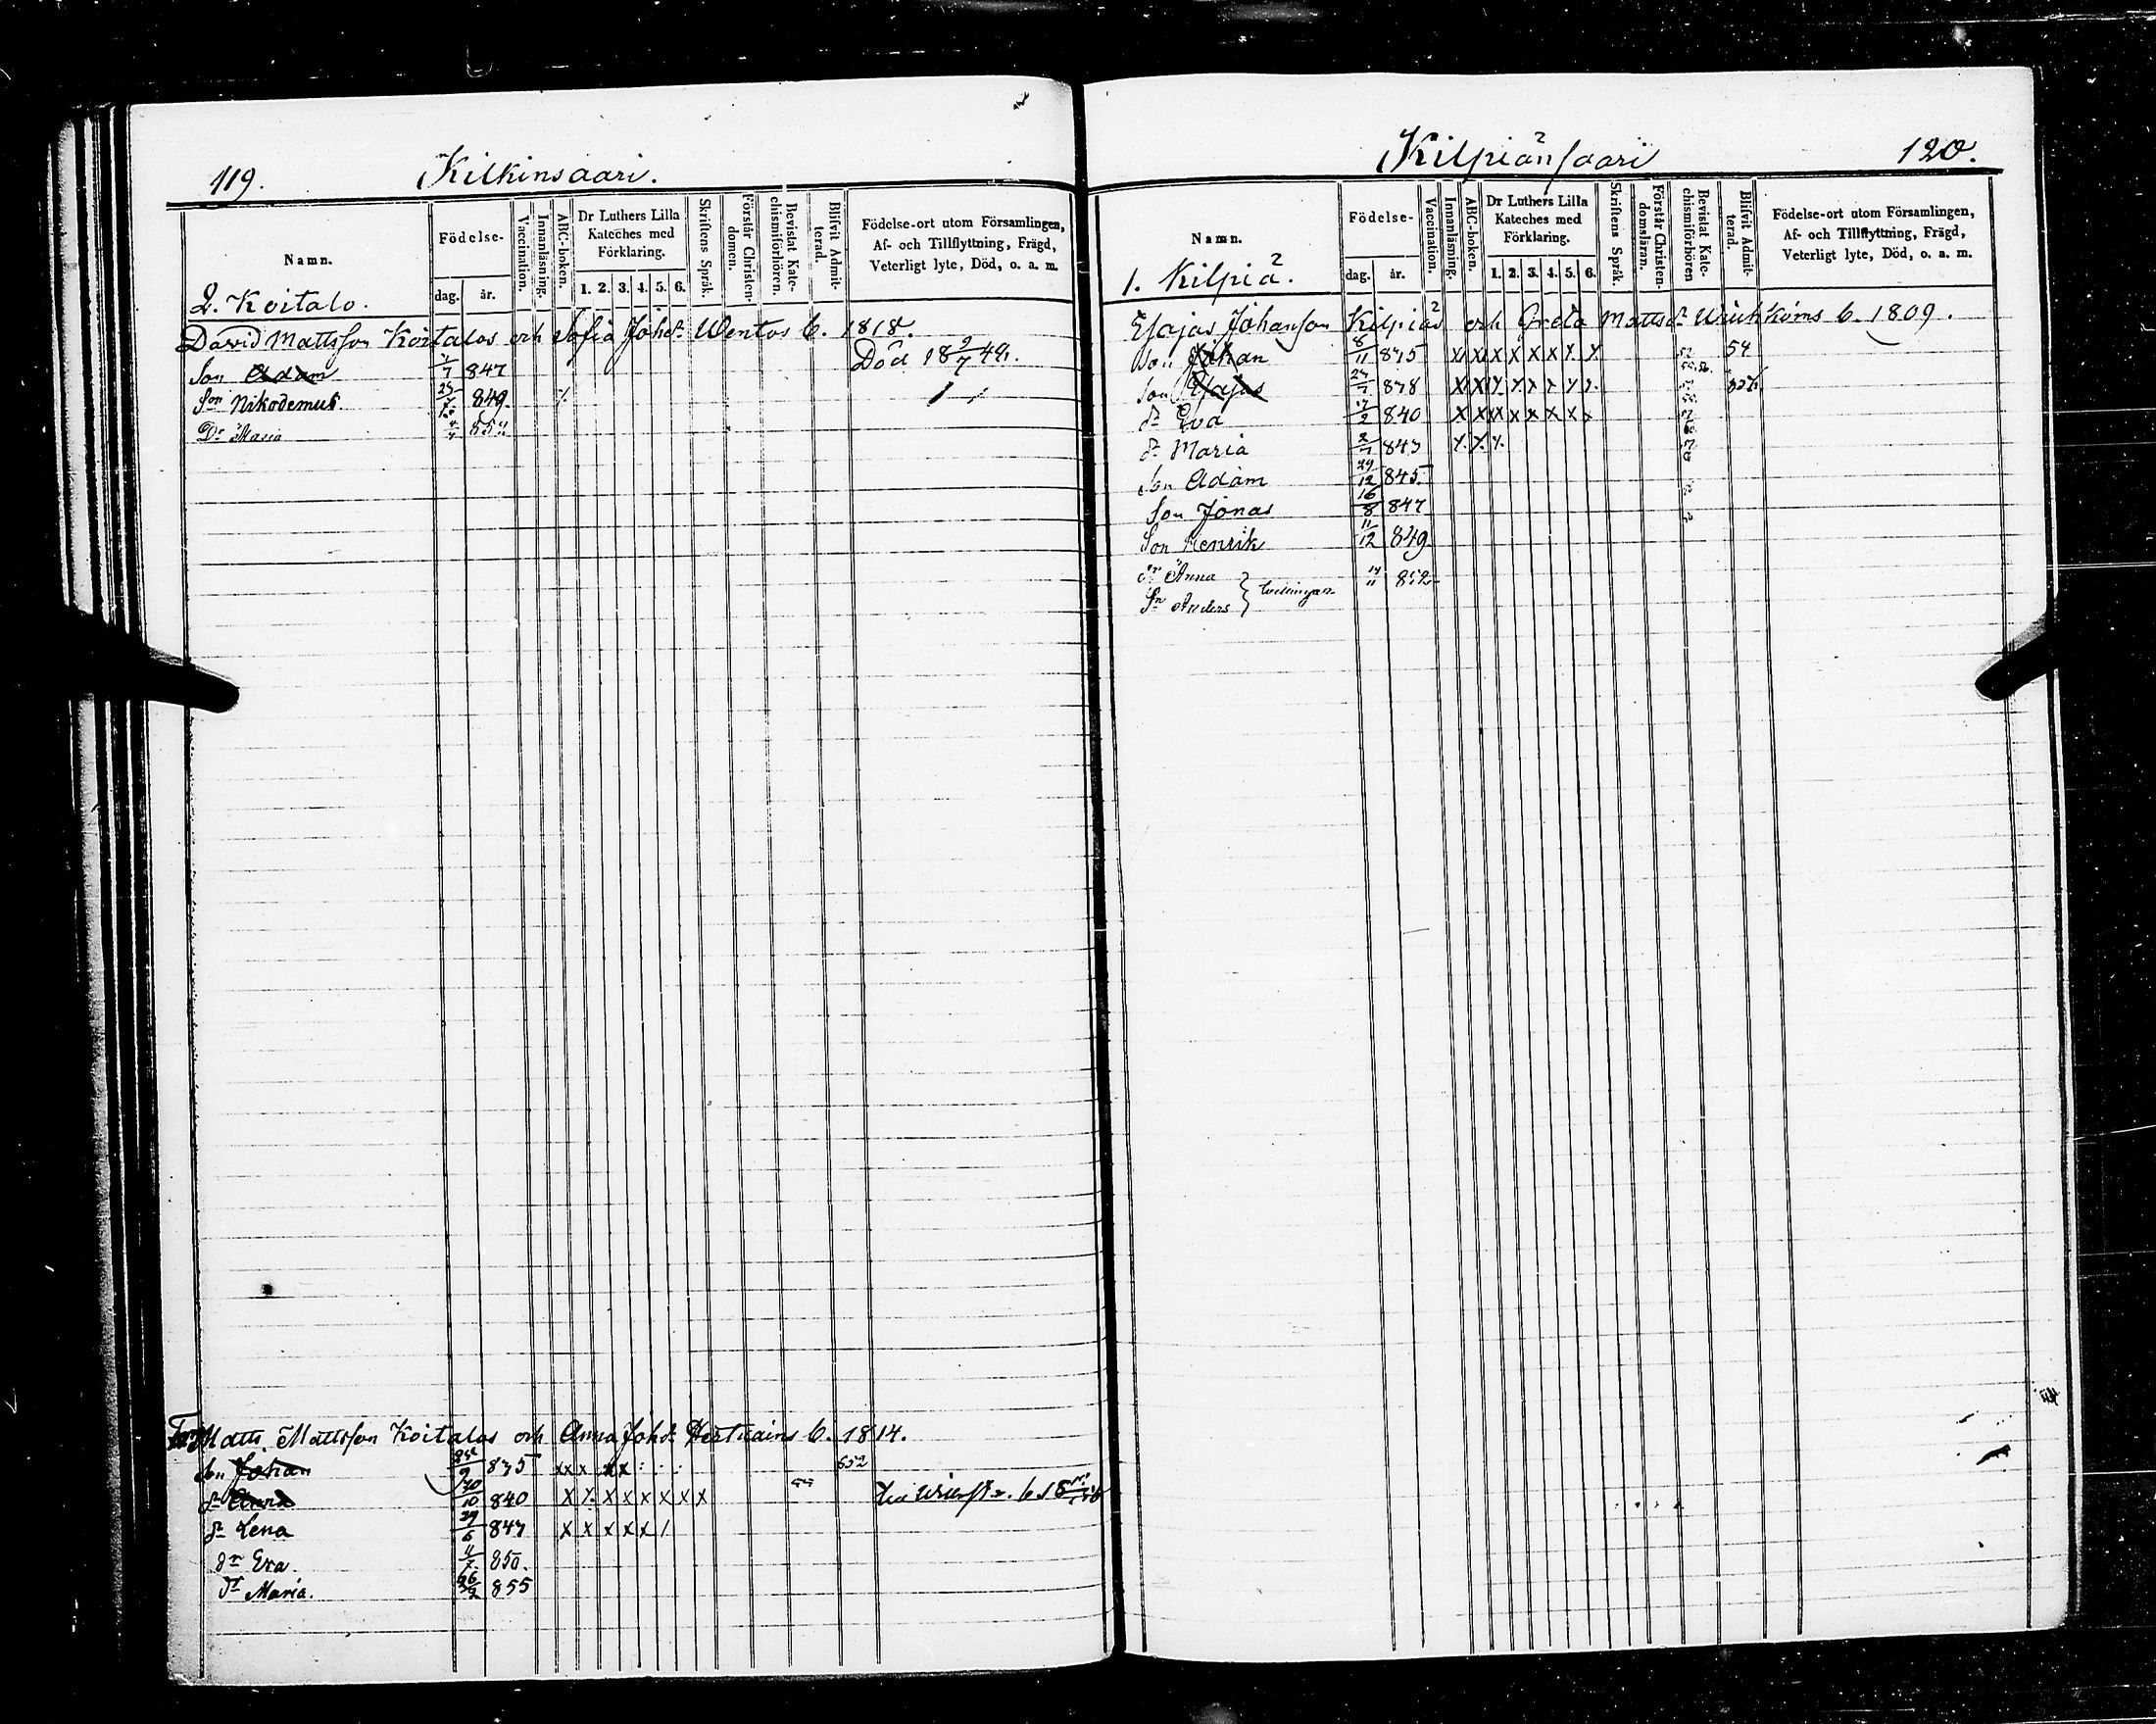 119. Kilkinsaari.
Namn.
Födelse-
dag. år.
Vaccination.
Innanläsning.
ABC-boken.
Dr Luthers Lilla Kateches med Förklaring.
1. 2. 3. 4. 5. 6.
Skriftens Språk.
Förstår Christen-domen.
Bevistat Kate-chismiförhören.
Blifvit Admit-terad.
Födelse-ort utom Församlingen, Af- och Tillflyttning, Frägd, Veterligt lyte, Död, o. a. m.
2. Koitalo.
David Mattsson Koitalas och Sofia Johsdr Wentos b. 1818.
Son Adam 847 Död
Son Nikodemus. 849
Dr Maria
Matts Mattsson Koitalas och Anna Johdr b. 1814.
Son Johan 835 x x x x x
dr Anna 30/10 840 x x x x x x x x
dr Lena 29/6 847 x x x x x /
dr Eva. 850.
dr Maria. 855
Kilpiänsaari 120.
Namn.
Födelse-
dag. år.
Vaccination.
Innanläsning.
ABC-boken.
Dr Luthers Lilla Kateches med Förklaring.
1. 2. 3. 4. 5. 6.
Skriftens Språk.
Förstår Christen-domsläran.
Bevistat Kate-chismiförhören
Blifvit Admit-terad.
Födelse-ort utom Församlingen, Af- och Tillflyttning, Frägd, Veterligt lyte, Död, o. a. m.
1. Kilpiä.
Esajas Johansson Kilpiäs och Greta Mattsdr b. 1809.
Son Johan 8/11 835 x x x x x x x x 54
Son Esajas 838 x x x x x x x x
dr Eva 840 x x x x x x x x
dr Maria 843 x x x
Son Adam 29/12 845.
Son Jonas 16/8 847
Son Henrik 11/12 849
dr Anna 14/11 852
Sn Anders } tvillingar